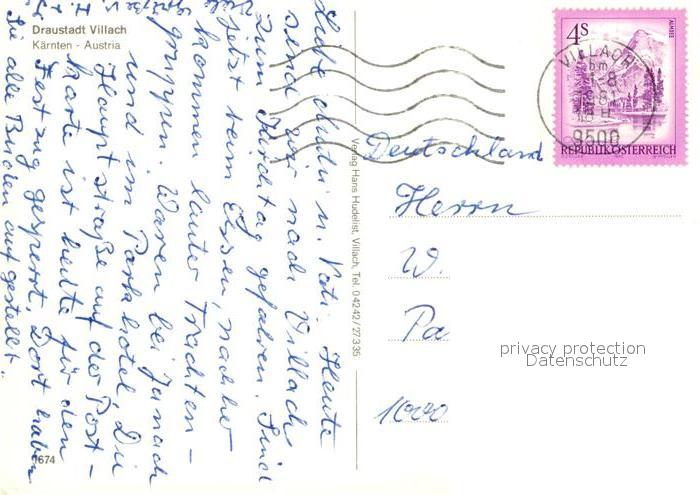 Draustadt Villach
Kärnten - Austria
Liebe Mutti u. Vati. Heute
sind wir nach Villach
zum Kirchtag gefahren. Sind
jetzt beim Essen, nachher
kommen lauter Trachten-
gruppen. Waren bei
und im Parkhotel. Die
Hauptstraße auf der Post-
karte ist heute für den
Festzug gesperrt. Dort haben
sie alle Buden aufgestellt.
Viele
Grüße v. H.
Verlag Hans Hudelist, Villach, Tel. 04242/27335
4S
ALMSEE
REPUBLIK ÖSTERREICH
VILLACH
9500
Deutschland
Herrn
W.
Pa
1000
privacy protection
Datenschutz
1674